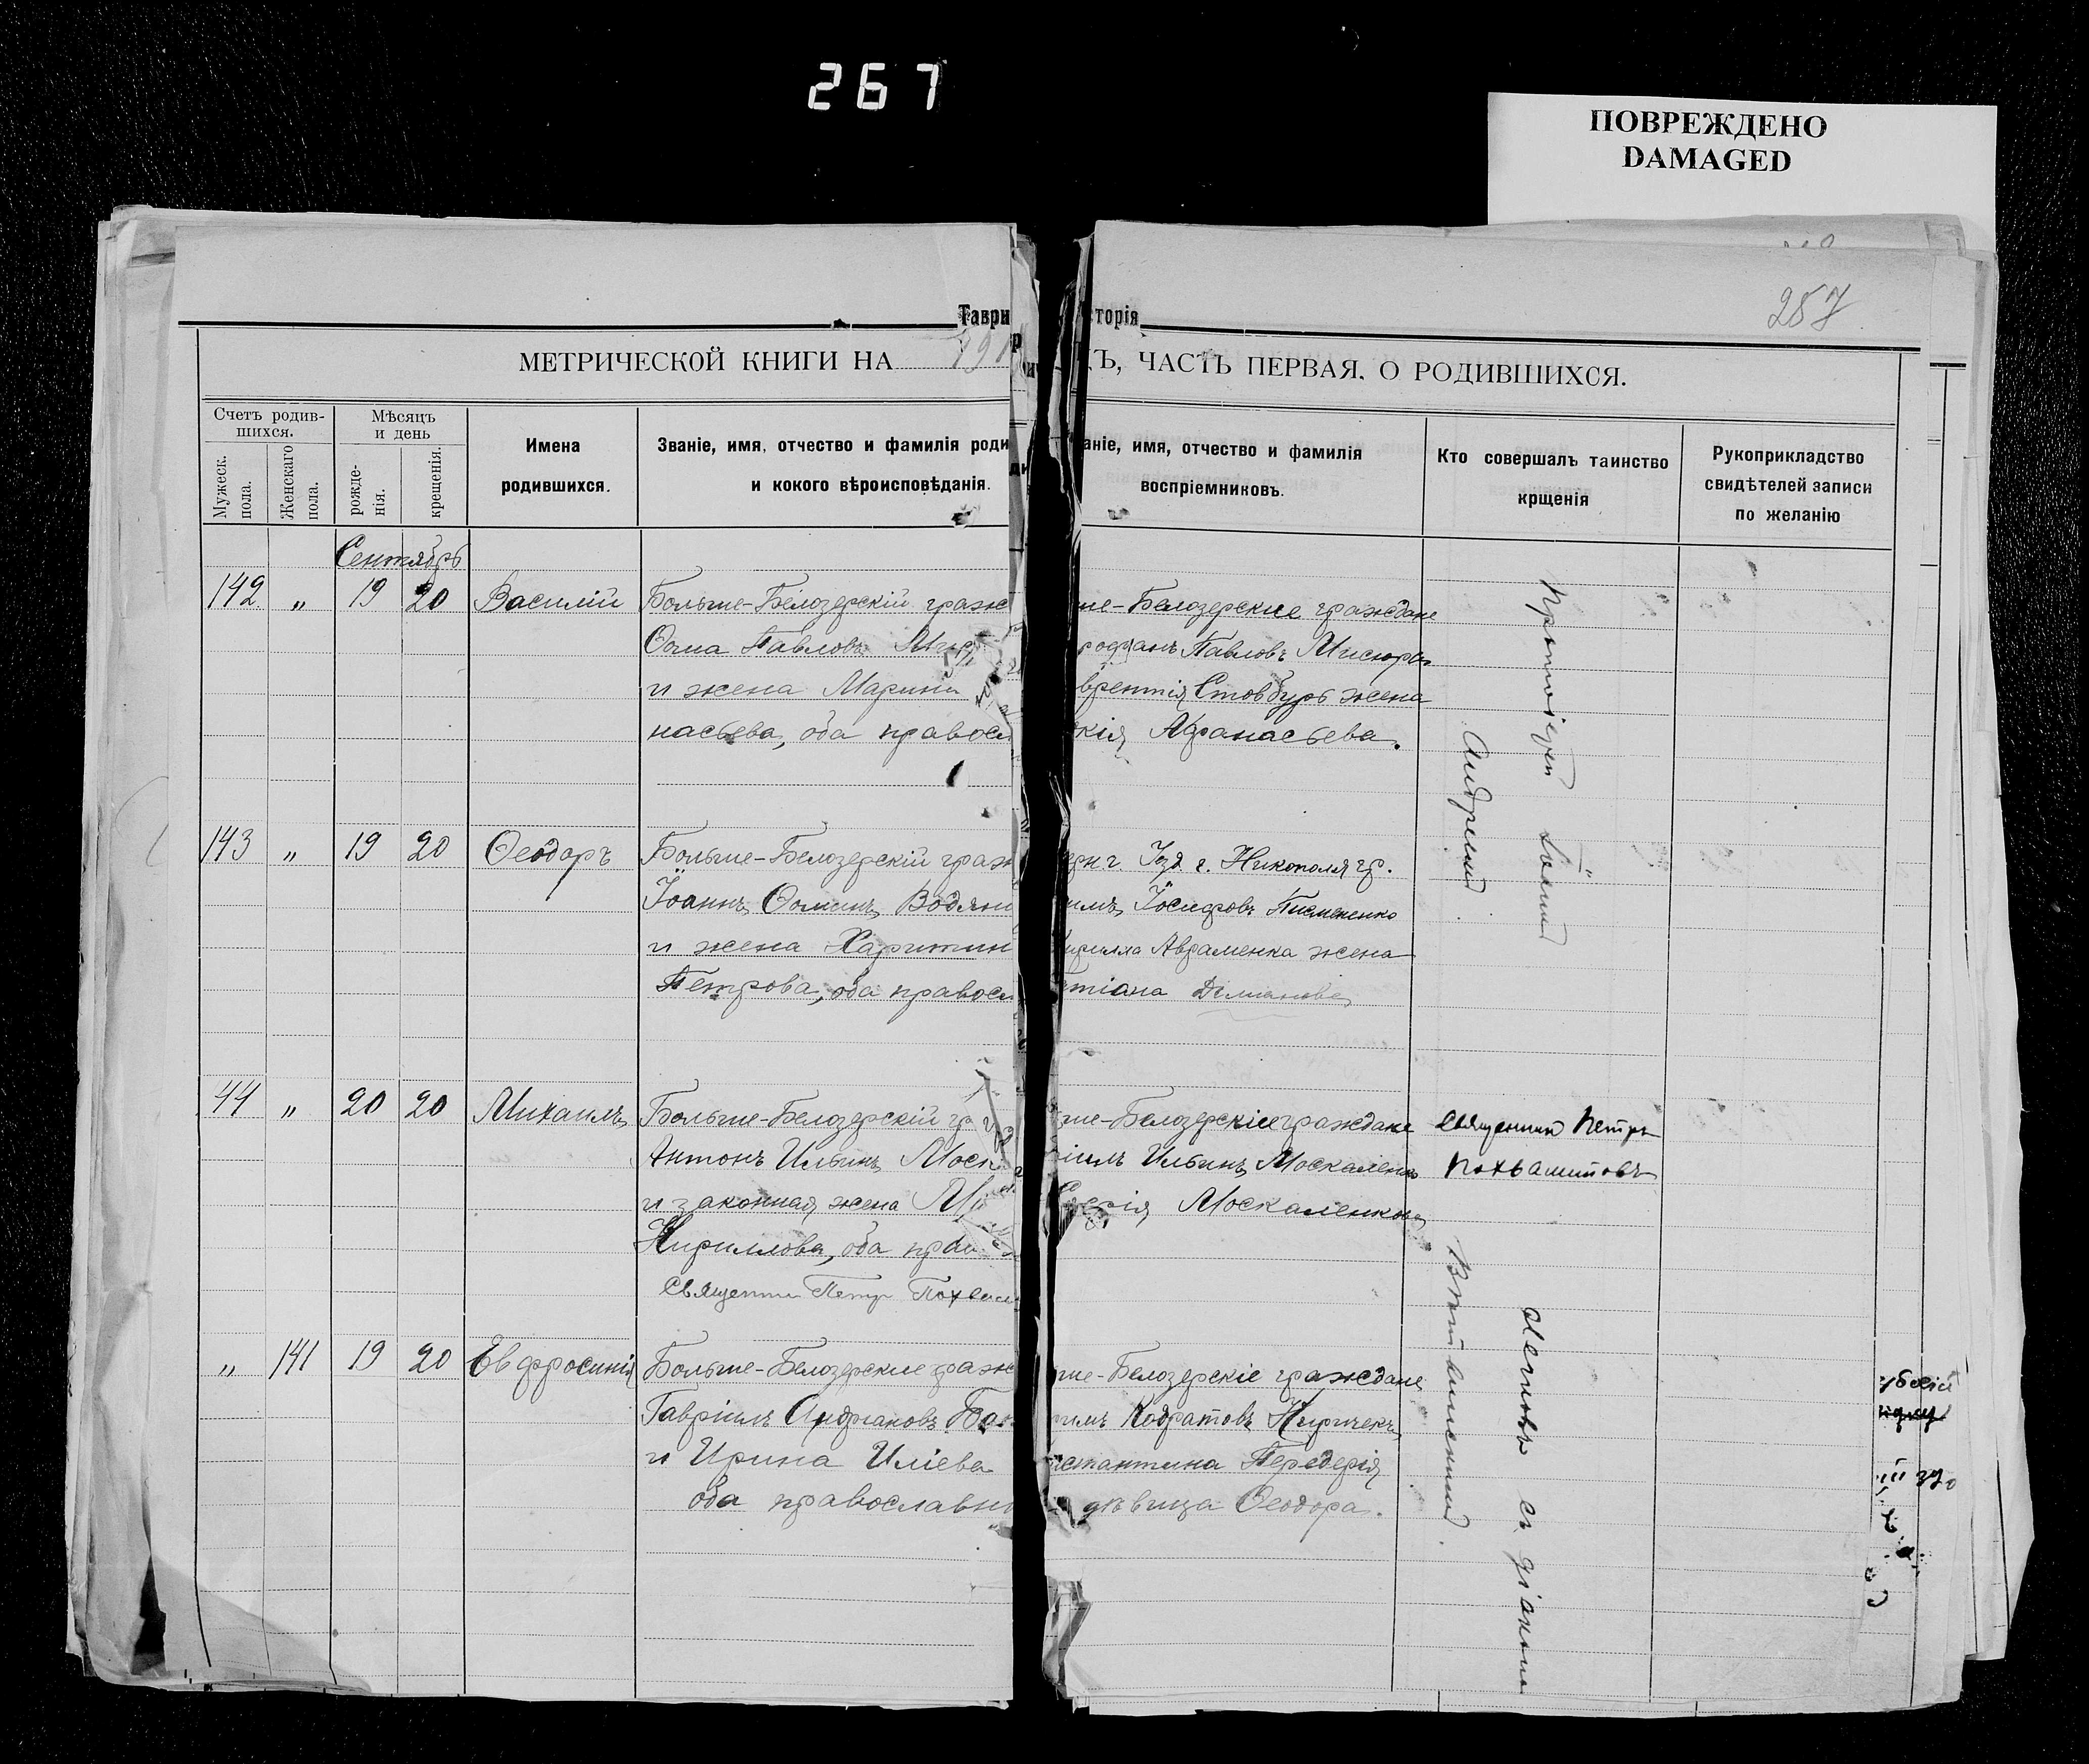 267
ПОВРЕЖДЕНО
DAMAGED
257
Таври
сторія
МЕТРИЧЕСКОЙ КНИГИ НА 191
Ъ, ЧАСТЬ ПЕРВАЯ, О РОДИВШИХСЯ.
Счетъ родив-
шихся.
Мужеск.
пола.
Женскаго
пола.
Мѣсяцъ
и день
рожде-
нія.
крещенія.
Имена
родившихся.
Званіе, имя, отчество и фамилія роди
и кокого вѣроисповѣданія.
аніе, имя, отчество и фамилія
воспріемниковъ.
Кто совершалъ таинство
крщенія
Рукоприкладство
свидѣтелей записи
по желанію
Сентябрь
142 " 19 20 Василій
Больше-Белозерскій граж
Ѳома Павловъ
и жена Марина
насьева, оба правосл
ше-Белозерские граждане
Павловъ Мисюра
врентія Стовбуръ жена
кія Афанасьева.
Протоіерей Іоаннъ
Андреевъ
143 " 19 20 Ѳеодоръ
Больше-Белозерскій граж
Іоаннъ Ѳоминъ Водяни
и жена Харитин
Петрова, оба правосл
г. Никополя гр.
имъ Іосифовъ Письмененко
Авраменка жена
тіана
44 " 20 20 Михаилъ
Больше-Белозерскій гр
Антонъ Ильинъ Моск
и законная жена
Кириллова, оба прав
Священни Петр Похвали
ше-Белозерскіе граждане
іилъ Ильинъ Москаленко
Москаленкова
Священник Петръ
" 141 19 20 Евфросинія
Больше-Белозерские граж
Гавріилъ Андріановъ
и Ирина Иліева
оба православны
ше-Белозерскіе граждане
Кодратовъ Киричекъ
нстантина Передерія
дѣвица Ѳеодора.
съ діакономъ